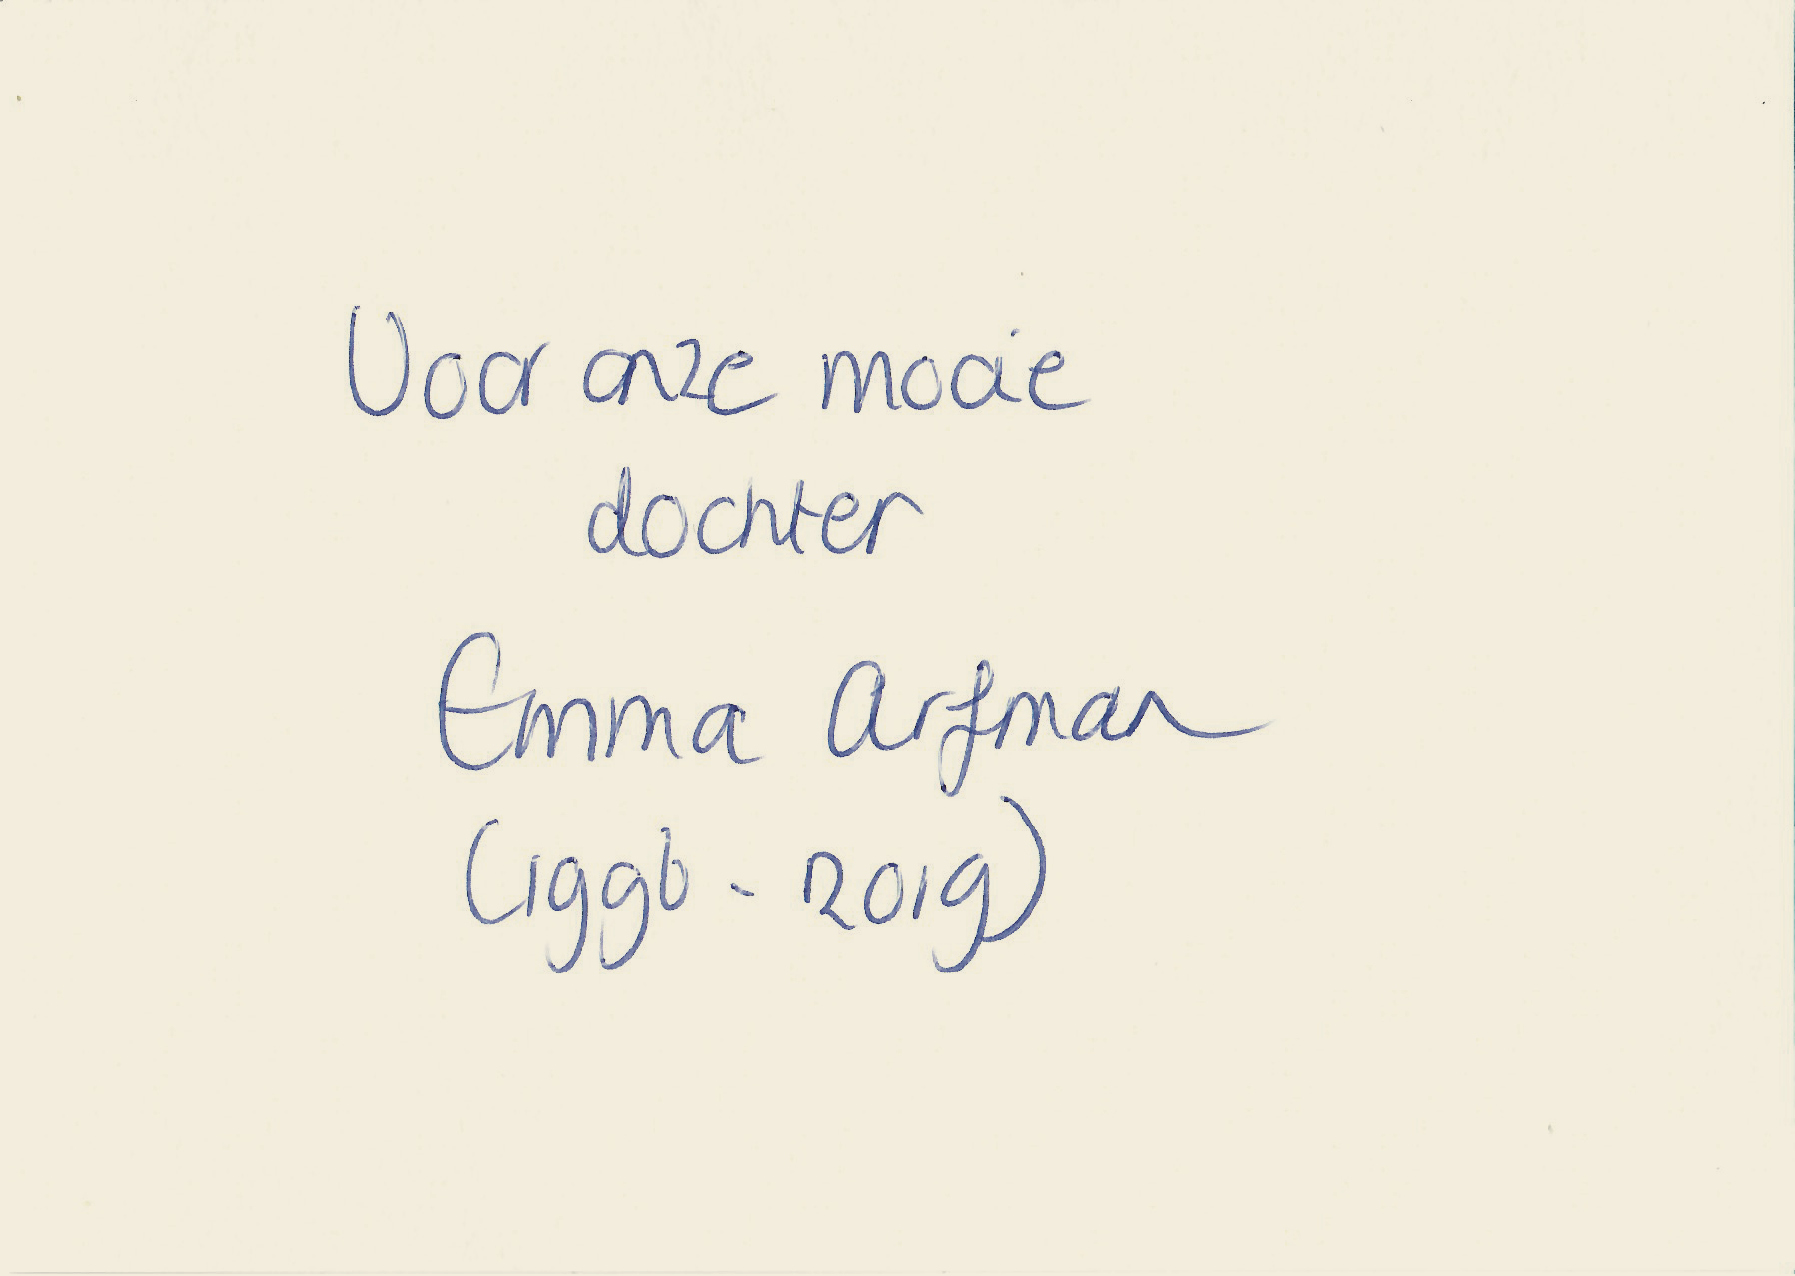 Voor onze mooie
dochter
Emma Arfman
(1996 - 2019)